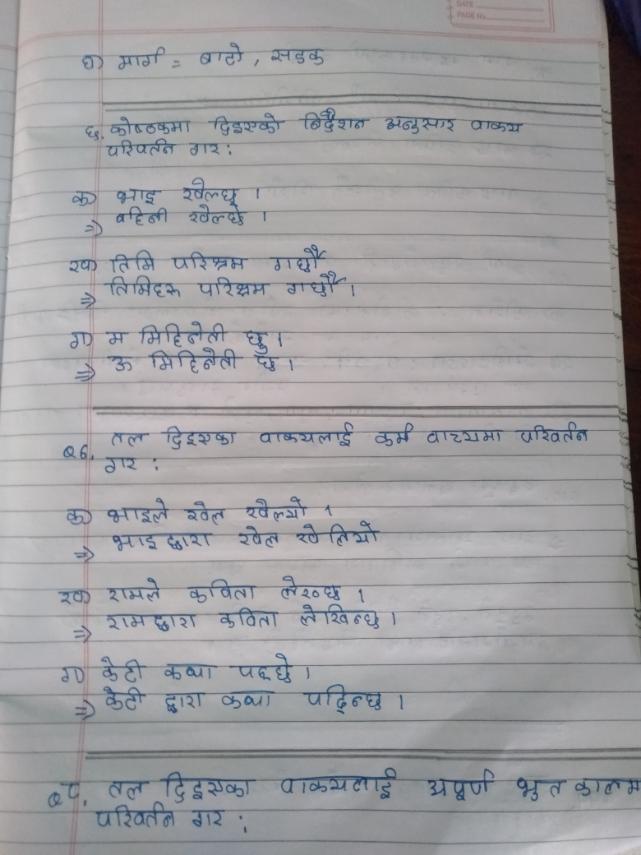 DATE
PAGE No.
घ) मार्ग = बाटो, सडक
६. कोष्ठकमा दिइएको निर्देशन अनुसार वाक्य
परिवर्तन गर :
क) भाइ खेल्छ ।
⇒ बहिनी खेल्छे ।
ख) तिमि परिश्रम गर्छौ
⇒ तिमिहरू परिश्रम गर्छौ ।
ग) म मिहिनेती छु ।
⇒ ऊ मिहिनेती छ ।
तल दिइएका वाक्यलाई कर्म वाच्यमा परिवर्तन
गर :
क) भाइले खेल खेल्यो ।
⇒ भाइद्वारा खेल खेलियो
ख) रामले कविता लेख्छ ।
⇒ रामद्वारा कविता लेखिन्छ ।
ग) केटी कथा पढ्छे ।
⇒ केटी द्वारा कथा पढिन्छ ।
तल दिइएका वाक्यलाई अपूर्ण भुत कालम
परिवर्तन गर :